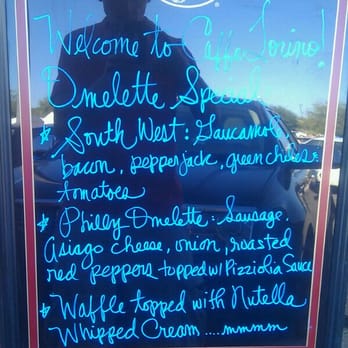 Welcome to Caffe Torino!
Omelette Special
* South West: Guacamol
bacon, pepperjack, green chiles.
tomatoes
* Philly Omelette: Sausage.
asiago cheese, onion, roasted
red peppers topped w/ Pizziolia Sauce
* Waffle topped with Nutella
Whipped Cream ....mmmm